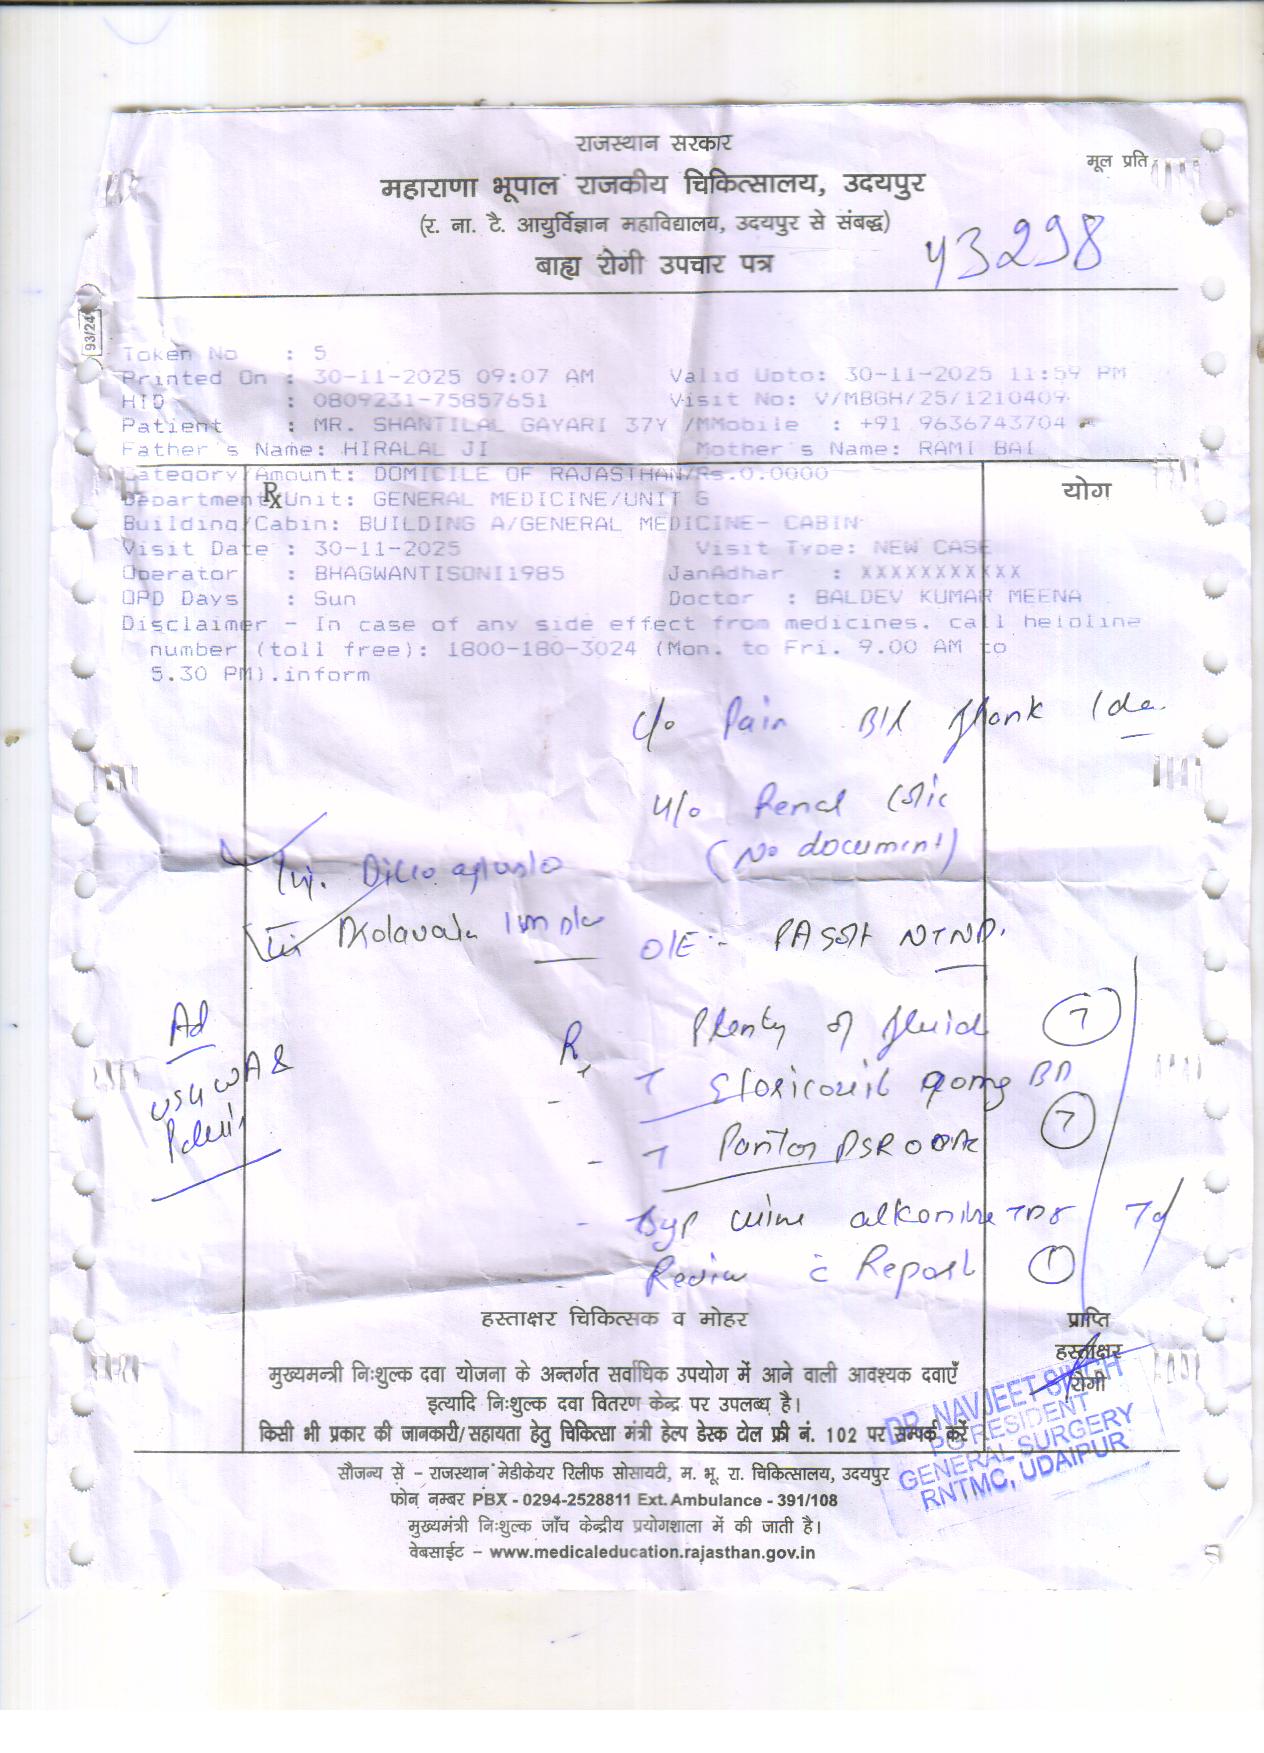 राजस्थान सरकार
मूल प्रति
महाराणा भूपाल राजकीय चिकित्सालय, उदयपुर
(र. ना. टै. आयुर्विज्ञान महाविद्यालय, उदयपुर से संबद्ध)
बाह्य रोगी उपचार पत्र
43298
93/24
Token No : 5
Printed On : 30-11-2025 09:07 AM Valid Upto: 30-11-2025 11:59 PM
HID : 0809231-75857651 Visit No: V/MBGH/25/1210409
Patient : MR. SHANTILAL GAYARI 37Y /M Mobile : +91 9636743704
Father's Name: HIRALAL JI Mother's Name: RAMI BAI
Category/Amount: DOMICILE OF RAJASTHAN/Rs.0.0000
Rx
योग
Department/Unit: GENERAL MEDICINE/UNIT G
Building/Cabin: BUILDING A/GENERAL MEDICINE- CABIN
Visit Date : 30-11-2025 Visit Type: NEW CASE
Operator : BHAGWANTISONI1985 JanAdhar : XXXXXXXXXXX
OPD Days : Sun Doctor : BALDEV KUMAR MEENA
Disclaimer - In case of any side effect from medicines, call helpline
number (toll free): 1800-180-3024 (Mon. to Fri. 9.00 AM to
5.30 PM).inform
c/o Pain B/L flank
Renal Colic
(No document)
O/E :- PA soft NTND.
Ad
Plenty of fluid 7
Rx
T
BD
T 7
Syp TDS 7d
Review c̄ Report 1
हस्ताक्षर चिकित्सक व मोहर
प्राप्ति
हस्ताक्षर
रोगी
मुख्यमन्त्री निःशुल्क दवा योजना के अन्तर्गत सर्वाधिक उपयोग में आने वाली आवश्यक दवाएँ
इत्यादि निःशुल्क दवा वितरण केन्द्र पर उपलब्ध है।
किसी भी प्रकार की जानकारी/सहायता हेतु चिकित्सा मंत्री हेल्प डेस्क टोल फ्री नं. 102 पर सम्पर्क करें
DR. NAVJEET SINGH
PG RESIDENT
GENERAL SURGERY
RNTMC, UDAIPUR
सौजन्य सें – राजस्थान मेडीकेयर रिलीफ सोसायटी, म. भू. रा. चिकित्सालय, उदयपुर
फोन नम्बर PBX - 0294-2528811 Ext. Ambulance - 391/108
मुख्यमंत्री निःशुल्क जाँच केन्द्रीय प्रयोगशाला में की जाती है।
वेबसाईट – www.medicaleducation.rajasthan.gov.in